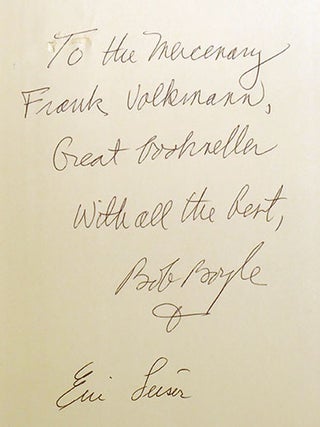 To the Mercenary
Frank Volkmann,
Great bookseller
With all the best,
Bob Boyle
&
Eric Leiser